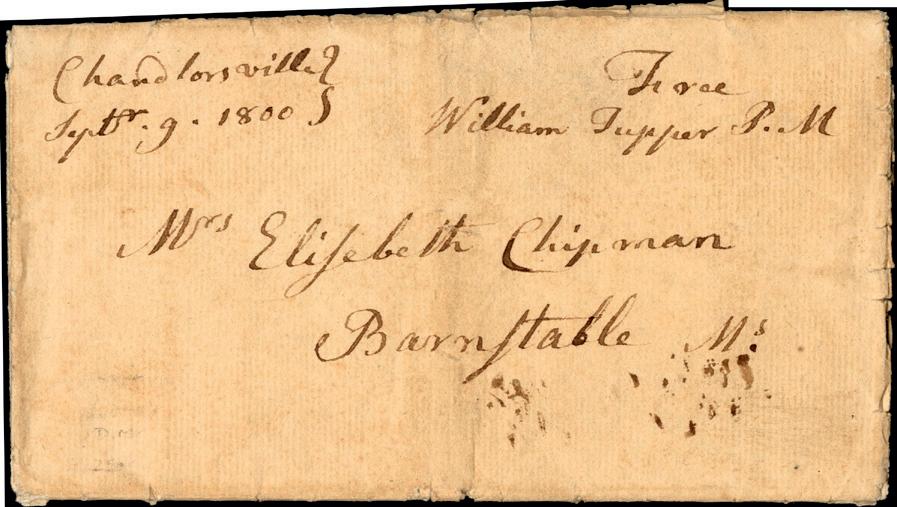 Chandlorsville
Septr. 9. 1800
Free
William Tupper P. M
Mrs Eliſebeth Chipman
Barnſtable Ms.